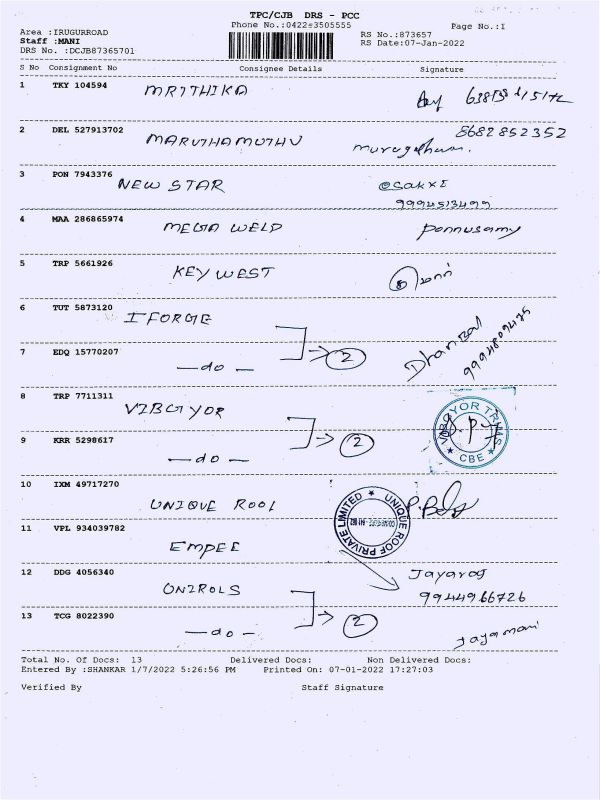 TPC/CJB DRS - PCC
Phone No.:0422-3505555
Page No.:1
Area :IRUGURROAD
Staff :MANI
DRS No. :DCJB87365701
RS No.:873657
RS Date:07-Jan-2022
S No Consignment No Consignee Details Signature
1 TKY 104594 MRITHIKA
2 DEL 527913702 MARUTHAMUTHU 8682852352
3 PON 7943376 NEW STAR
9994513499
4 MAA 286865974 MEGA WELD Ponnusamy
5 TRP 5661926 KEY WEST
6 TUT 5873120 I FORGE
7 EDQ 15770207 —do— 2 Dhanbal 9994809475
8 TRP 7711311 VIBGYOR
VIBGYOR TRIMS
★ CBE ★
9 KRR 5298617 —do— 2
10 IXM 49717270 UNIQUE ROOF
★ UNIQUE ROOF PRIVATE LIMITED
11 VPL 934039782 EMPEE
12 DDG 4056340 UNIROLS Jayaraj
9944966726
13 TCG 8022390 —do— 2 Jayamani
Total No. Of Docs: 13 Delivered Docs: Non Delivered Docs:
Entered By :SHANKAR 1/7/2022 5:26:56 PM Printed On: 07-01-2022 17:27:03
Verified By Staff Signature